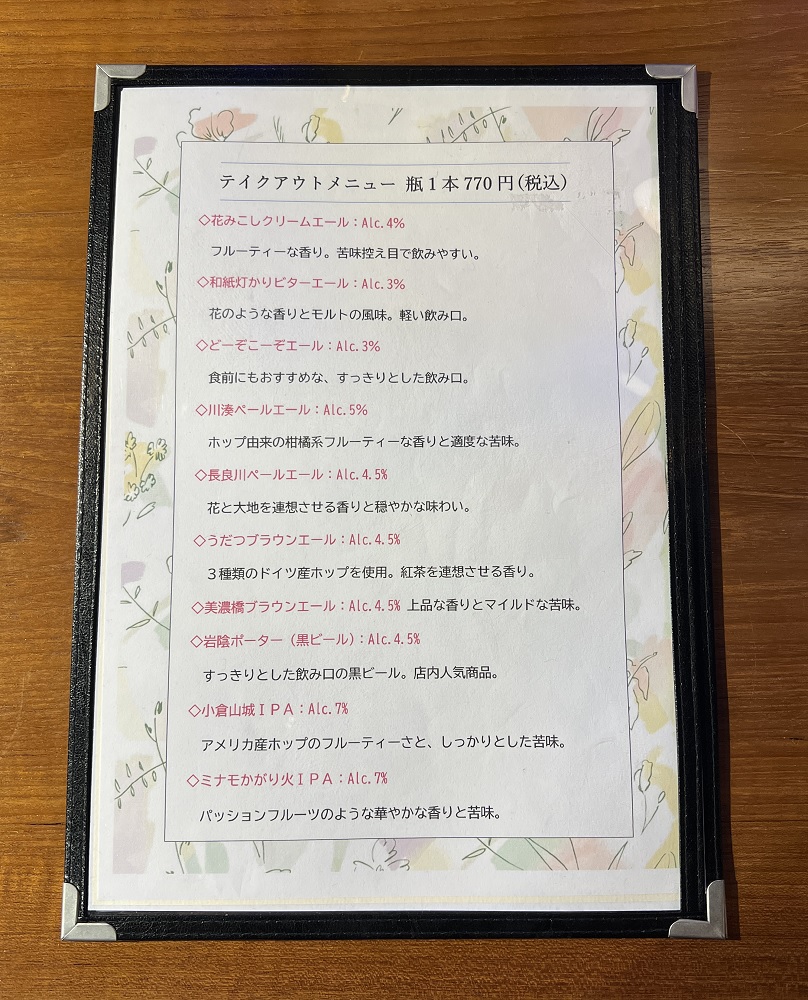 テイクアウトメニュー 瓶1本770円(税込)
◇花みこしクリームエール：Alc.4%
フルーティーな香り。苦味控え目で飲みやすい。
◇和紙灯かりビターエール：Alc.3%
花のような香りとモルトの風味。軽い飲み口。
◇どーぞこーぞエール：Alc.3%
食前にもおすすめな、すっきりとした飲み口。
◇川湊ペールエール：Alc.5%
ホップ由来の柑橘系フルーティーな香りと適度な苦味。
◇長良川ペールエール：Alc.4.5%
花と大地を連想させる香りと穏やかな味わい。
◇うだつブラウンエール：Alc.4.5%
３種類のドイツ産ホップを使用。紅茶を連想させる香り。
◇美濃橋ブラウンエール：Alc.4.5% 上品な香りとマイルドな苦味。
◇岩陰ポーター（黒ビール）：Alc.4.5%
すっきりとした飲み口の黒ビール。店内人気商品。
◇小倉山城ＩＰＡ：Alc.7%
アメリカ産ホップのフルーティーさと、しっかりとした苦味。
◇ミナモかがり火ＩＰＡ：Alc.7%
パッションフルーツのような華やかな香りと苦味。